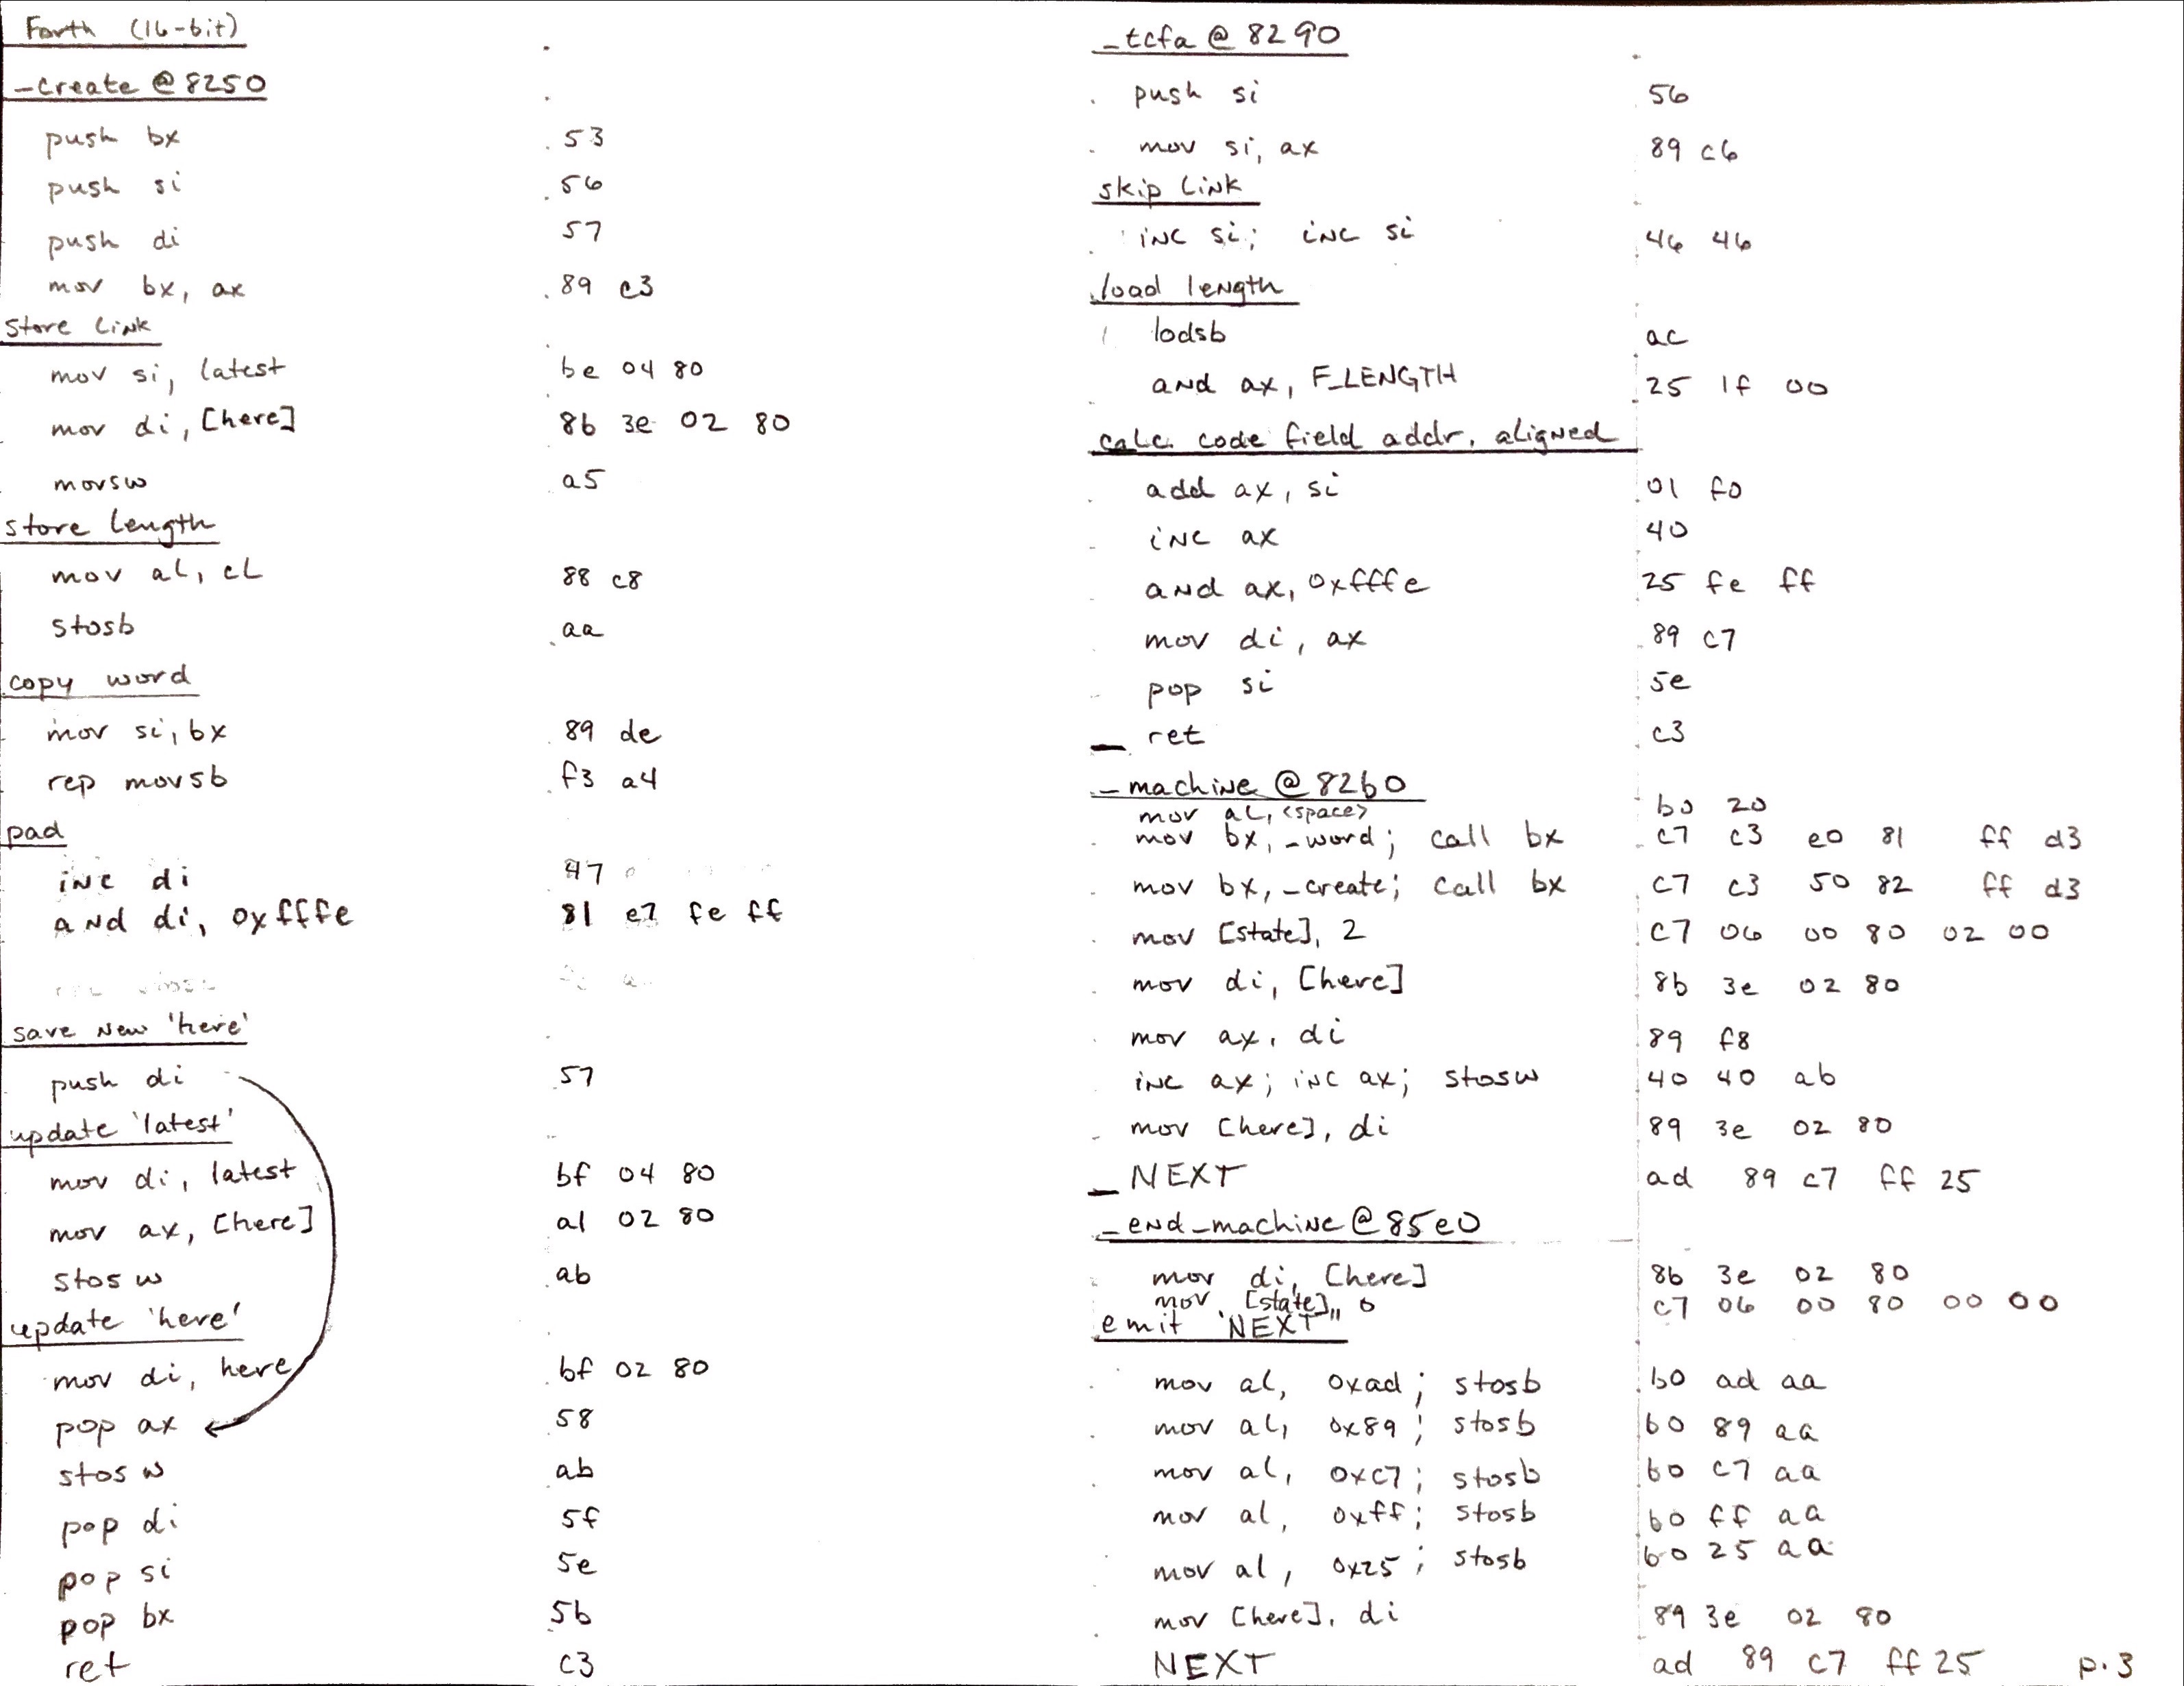 Forth (16-bit)
_create @ 8250
push bx 53
push si 56
push di 57
mov bx, ax 89 c3
store link
mov si, latest be 04 80
mov di, [here] 8b 3e 02 80
movsw a5
store length
mov al, cl 88 c8
stosb aa
copy word
mov si, bx 89 de
rep movsb f3 a4
pad
inc di 47
and di, 0xfffe 81 e7 fe ff
save new 'here'
push di 57
update 'latest'
mov di, latest bf 04 80
mov ax, [here] a1 02 80
stosw ab
update 'here'
mov di, here bf 02 80
pop ax 58
stosw ab
pop di 5f
pop si 5e
pop bx 5b
ret c3
_tcfa @ 8290
push si 56
mov si, ax 89 c6
skip link
inc si; inc si 46 46
load length
lodsb ac
and ax, F_LENGTH 25 1f 00
calc. code field addr, aligned
add ax, si 01 f0
inc ax 40
and ax, 0xfffe 25 fe ff
mov di, ax 89 c7
pop si 5e
ret c3
_machine @ 82b0
mov al, <space> b0 20
mov bx, _word; call bx c7 c3 e0 81 ff d3
mov bx, _create; call bx c7 c3 50 82 ff d3
mov [state], 2 c7 06 00 80 02 00
mov di, [here] 8b 3e 02 80
mov ax, di 89 f8
inc ax; inc ax; stosw 40 40 ab
mov [here], di 89 3e 02 80
NEXT ad 89 c7 ff 25
_end_machine @ 85e0
mov di, [here] 8b 3e 02 80
mov [state], 0 c7 06 00 80 00 00
emit "NEXT"
mov al, 0xad; stosb b0 ad aa
mov al, 0x89; stosb b0 89 aa
mov al, 0xc7; stosb b0 c7 aa
mov al, 0xff; stosb b0 ff aa
mov al, 0x25; stosb b0 25 aa
mov [here], di 89 3e 02 80
NEXT ad 89 c7 ff 25
p.3